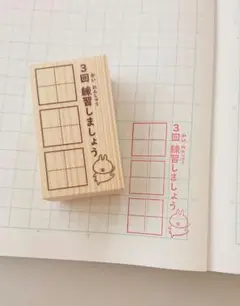 3回 練習しましょう
かい れんしゅう
3回 練習しましょう
かい れんしゅう